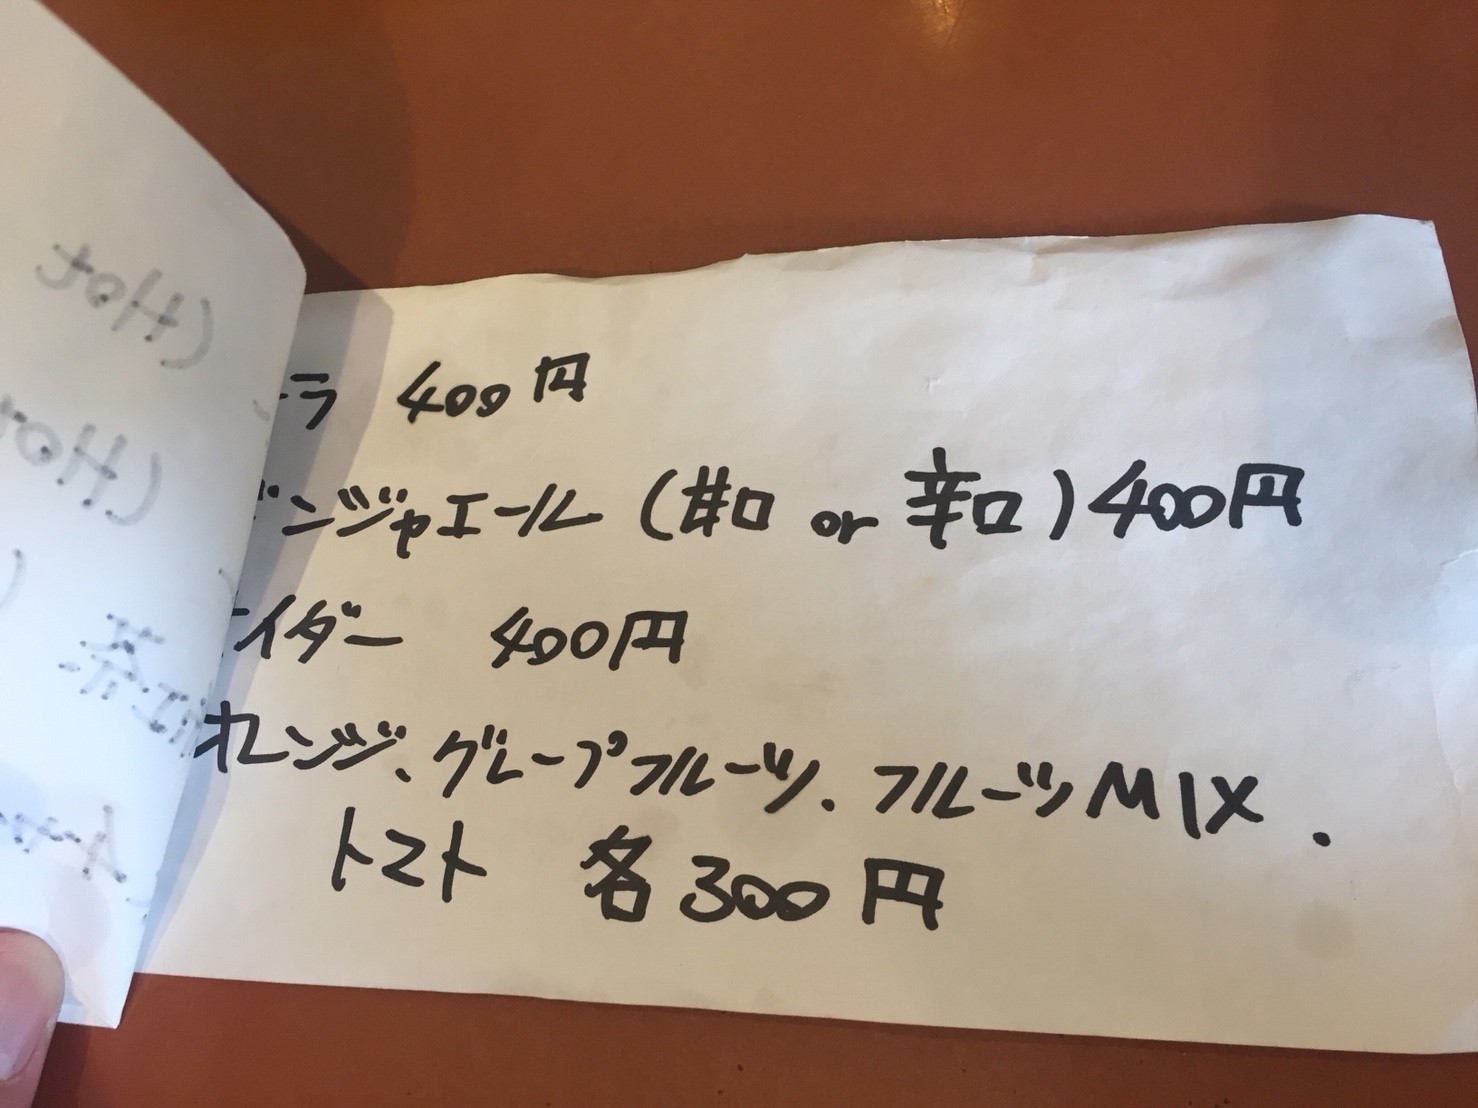 ーラ 400円
ジンジャエール (甘口 or 辛口) 400円
イダー 400円
オレンジ、グレープフルーツ、フルーツMIX、
トマト 各300円
(Hot
(Hot
茶